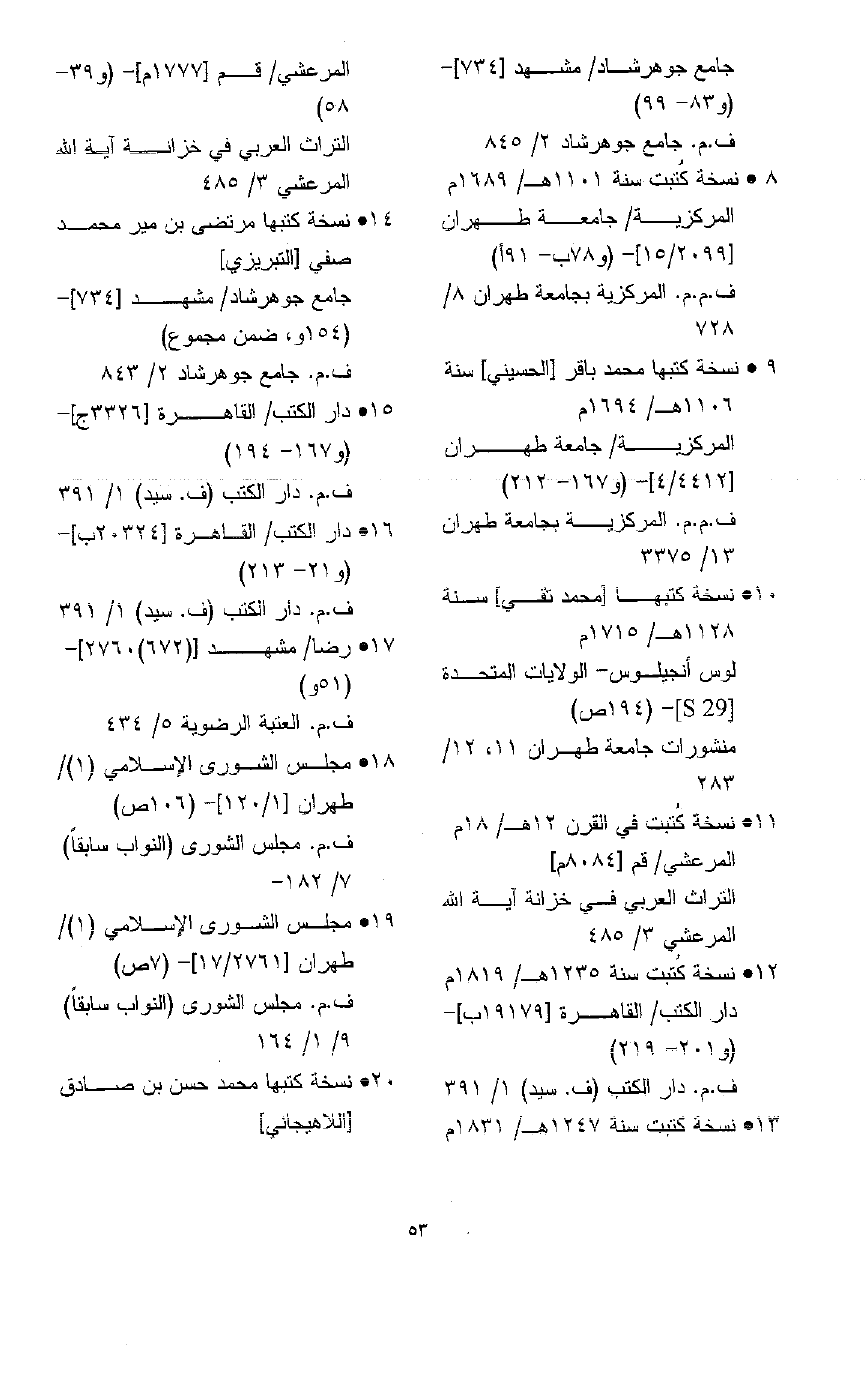 جامع جوهرشاد/ مشهد [٧٣٤]–
(و٨٣– ٩٩)
ف.م. جامع جوهرشاد ٢/ ٨٤٥
٨ • نسخة كُتبت سنة ١١٠١هـ/ ١٦٨٩م
المركزية/ جامعة طهران
[١٥/٢٠٩٩]– (و٧٨ب– ٩١أ)
ف.م.م. المركزية بجامعة طهران ٨/
٧٢٨
٩ • نسخة كتبها محمد باقر [الحسيني] سنة
١١٠٦هـ/ ١٦٩٤م
المركزية/ جامعة طهران
[٤/٤٤١٢]– (و١٦٧– ٢١٢)
ف.م.م. المركزية بجامعة طهران
١٣/ ٣٣٧٥
١٠• نسخة كتبها [محمد تقي] سنة
١١٢٨هـ/ ١٧١٥م
لوس أنجيلوس– الولايات المتحدة
[S 29]– (١٩٤ص)
منشورات جامعة طهران ١١، ١٢/
٢٨٣
١١• نسخة كُتبت في القرن ١٢هـ/ ١٨م
المرعشي/ قم [٨٠٨٤م]
التراث العربي في خزانة آية الله
المرعشي ٣/ ٤٨٥
١٢• نسخة كُتبت سنة ١٢٣٥هـ/ ١٨١٩م
دار الكتب/ القاهرة [١٩١٧٩ب]–
(و٢٠١– ٢١٩)
ف.م. دار الكتب (ف. سيد) ١/ ٣٩١
١٣• نسخة كتبت سنة ١٢٤٧هـ/ ١٨٣١م
المرعشي/ قم [١٧٧٧م]– (و٣٩–
٥٨)
التراث العربي في خزانة آية الله
المرعشي ٣/ ٤٨٥
١٤• نسخة كتبها مرتضى بن مير محمد
صفي [التبريزي]
جامع جوهرشاد/ مشهد [٧٣٤]–
(١٥٤و، ضمن مجموع)
ف.م. جامع جوهرشاد ٢/ ٨٤٣
١٥• دار الكتب/ القاهرة [٣٣٢٦ج]–
(و١٦٧– ١٩٤)
ف.م. دار الكتب (ف. سيد) ١/ ٣٩١
١٦• دار الكتب/ القاهرة [٢٠٣٢٤ب]–
(و٢١– ٢١٣)
ف.م. دار الكتب (ف. سيد) ١/ ٣٩١
١٧• رضا/ مشهد [(٦٧٢)٢٧٦٠]–
(٥١و)
ف.م. العتبة الرضوية ٥/ ٤٣٤
١٨• مجلس الشورى الإسلامي (١)/
طهران [١٢٠/١]– (١٠٦ص)
ف.م. مجلس الشورى (النواب سابقاً)
٧/ ١٨٢–
١٩• مجلس الشورى الإسلامي (١)/
طهران [١٧/٢٧٦١]– (٧ص)
ف.م. مجلس الشورى (النواب سابقاً)
٩/ ١/ ١٦٤
٢٠• نسخة كتبها محمد حسن بن صادق
[اللاهيجاني]
٥٣